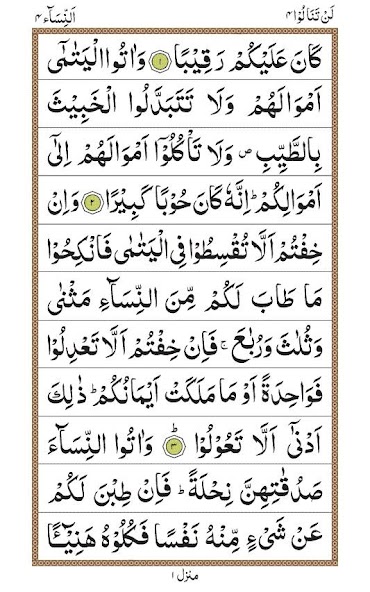 لَنْ تَنَالُوْا ۴ اَلنِّسَآء ۴
كَانَ عَلَيْكُمْ رَقِيْبًا ۝۱ وَاٰتُوا الْيَتٰمٰٓى
اَمْوَالَهُمْ وَلَا تَتَبَدَّلُوا الْخَبِيْثَ
بِالطَّيِّبِ ص وَلَا تَاْكُلُوْٓا اَمْوَالَهُمْ اِلٰٓى
اَمْوَالِكُمْ ؕ اِنَّهٗ كَانَ حُوْبًا كَبِيْرًا ۝۲ وَاِنْ
خِفْتُمْ اَلَّا تُقْسِطُوْا فِى الْيَتٰمٰى فَانْكِحُوْا
مَا طَابَ لَكُمْ مِّنَ النِّسَآءِ مَثْنٰى
وَثُلٰثَ وَرُبٰعَ ۚ فَاِنْ خِفْتُمْ اَلَّا تَعْدِلُوْا
فَوَاحِدَةً اَوْ مَا مَلَكَتْ اَيْمَانُكُمْ ؕ ذٰلِكَ
اَدْنٰٓى اَلَّا تَعُوْلُوْا ؕ۝۳ وَاٰتُوا النِّسَآءَ
صَدُقٰتِهِنَّ نِحْلَةً ؕ فَاِنْ طِبْنَ لَكُمْ
عَنْ شَىْءٍ مِّنْهُ نَفْسًا فَكُلُوْهُ هَنِيْٓـًٔا
منزل ۱